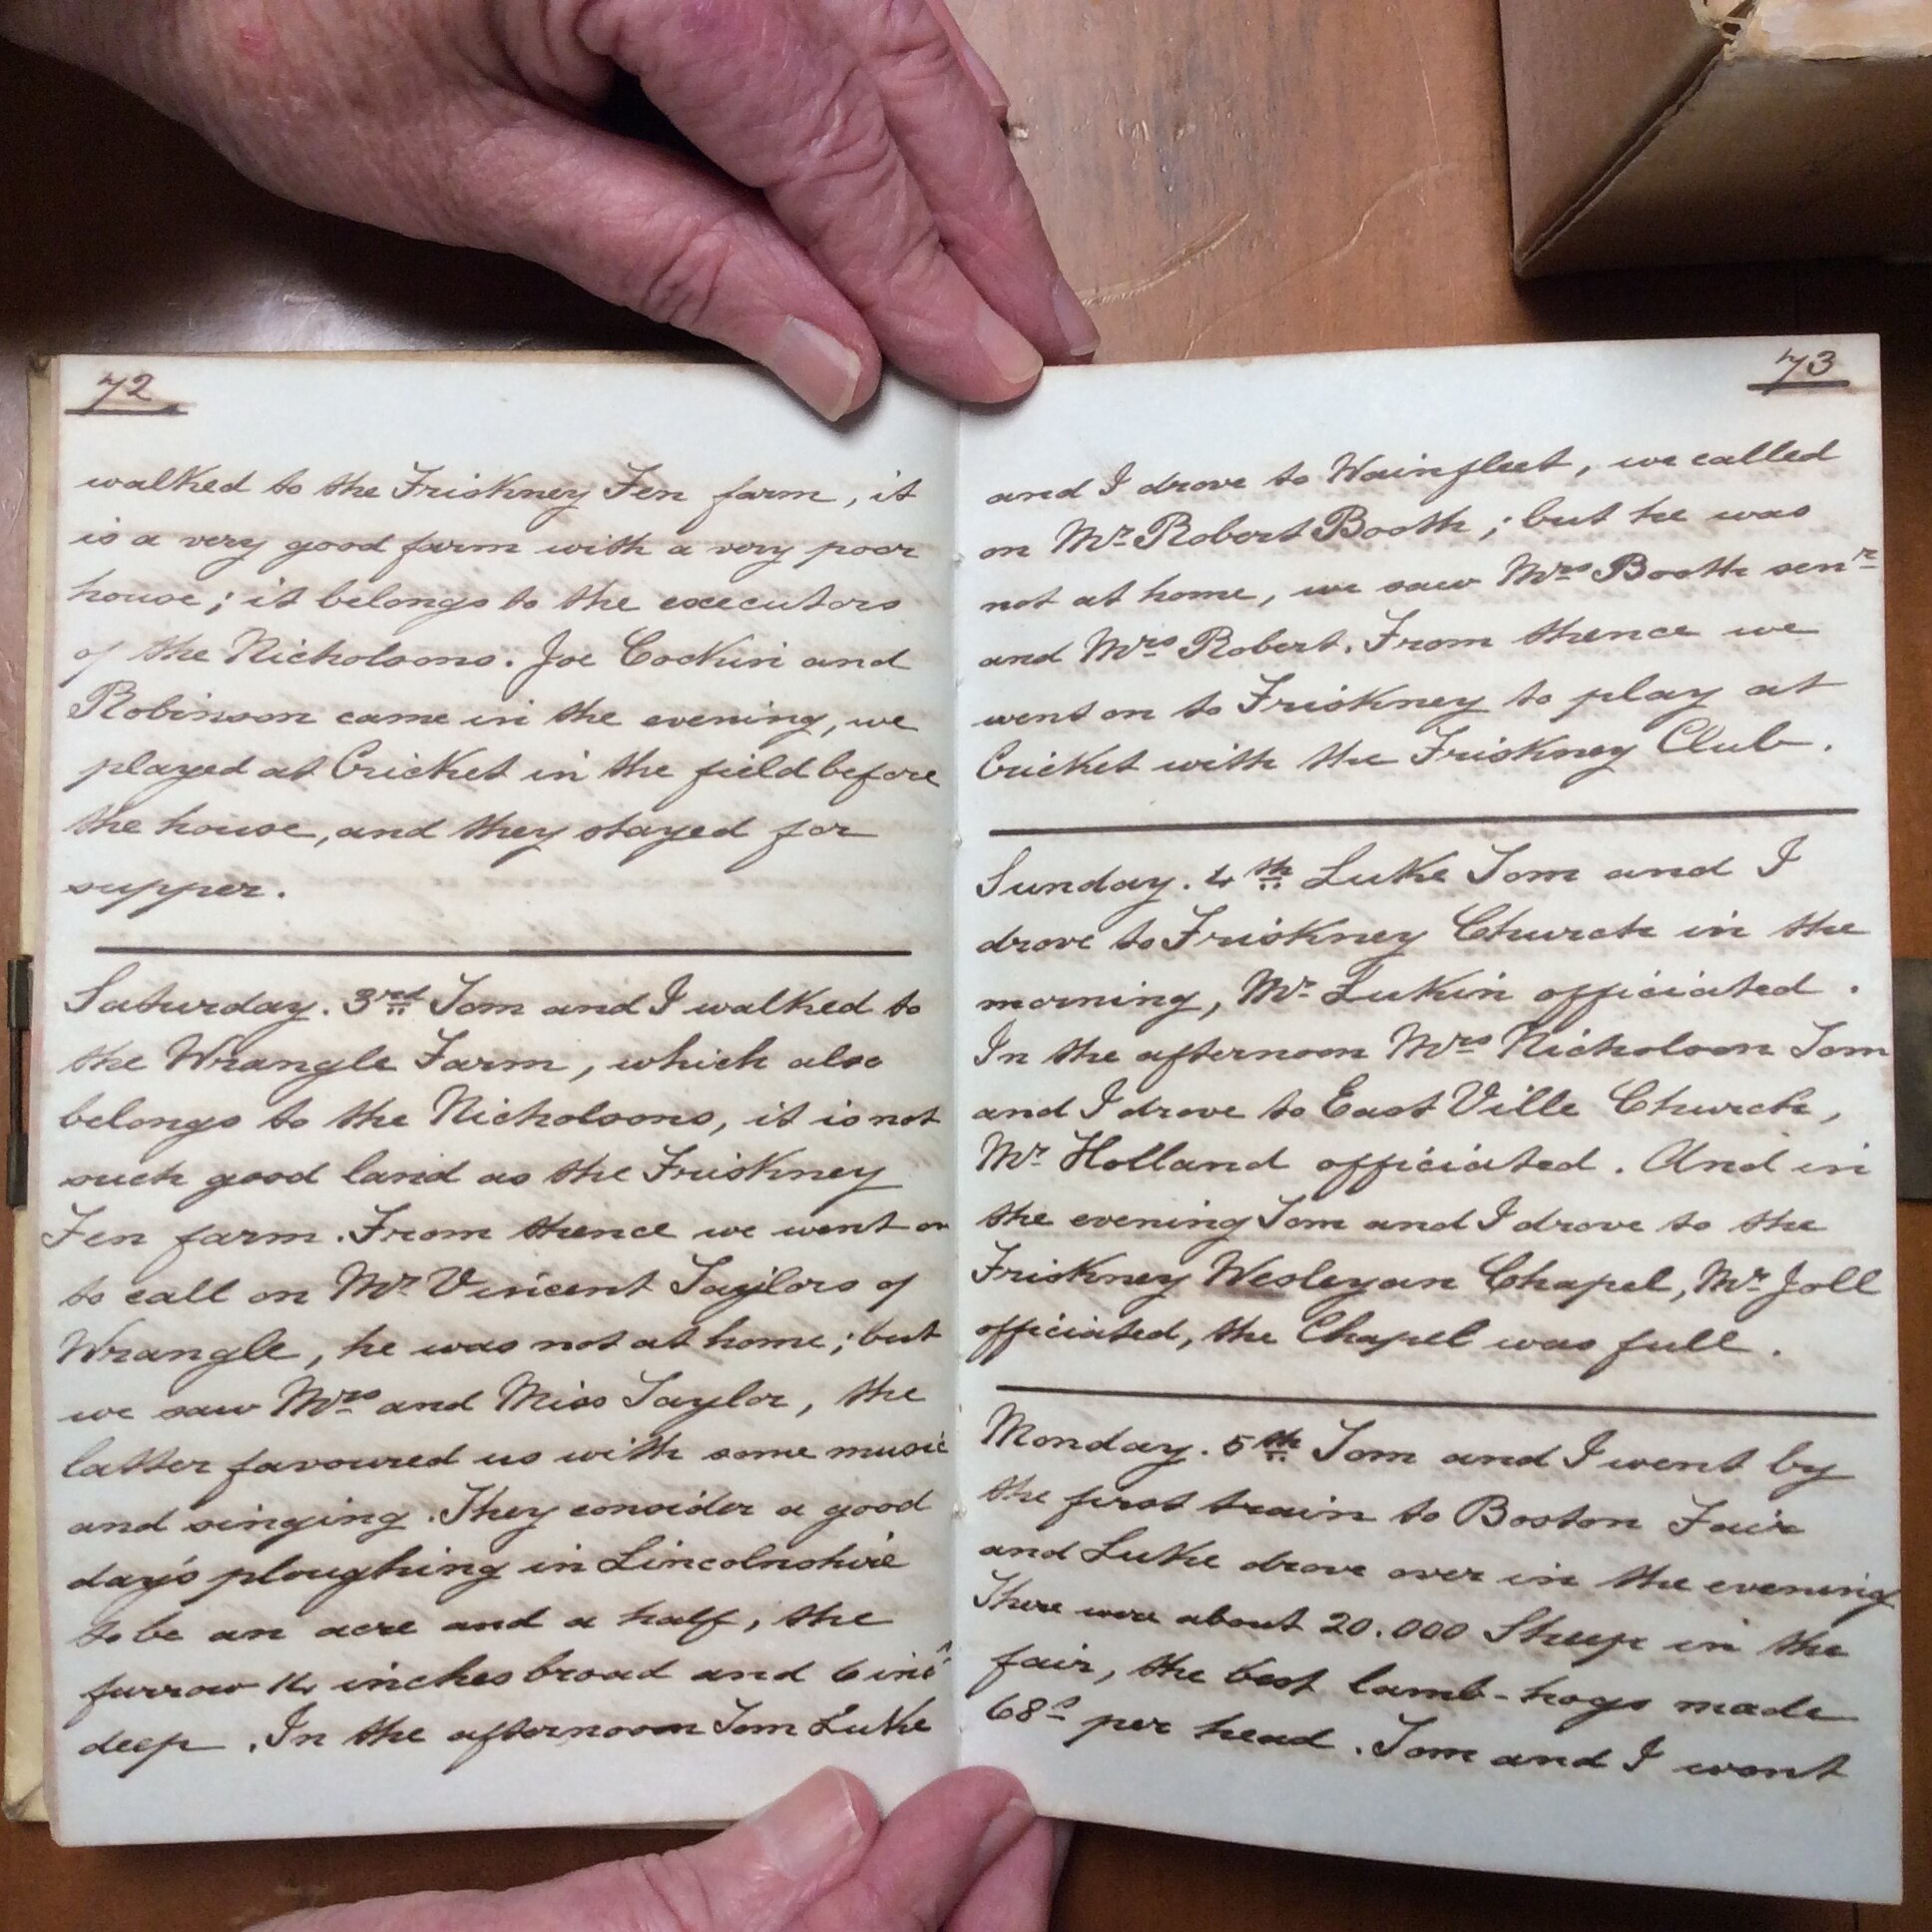 72
walked to the Friskney Fen farm, it
is a very good farm with a very poor
house; it belongs to the executors
of the Nicholsons. Joe Cockin and
Robinson came in the evening, we
played at Cricket in the field before
the house, and they stayed for
supper.
Saturday. 3rd Tom and I walked to
the Wrangle Farm, which also
belongs to the Nicholsons, it is not
such good land as the Friskney
Fen farm. From thence we went on
to call on Mr Vincent Taylors of
Wrangle, he was not at home; but
we saw Mrs and Miss Taylor, the
latter favoured us with some music
and singing. They consider a good
day's ploughing in Lincolnshire
to be an acre and a half, the
furrow 14 inches broad and 6 inc^s
deep. In the afternoon Tom Luke
73
and I drove to Wainfleet, we called
on Mr Robert Booth; but he was
not at home, we saw Mrs Booth senr
and Mrs Robert. From thence we
went on to Friskney to play at
Cricket with the Friskney Club.
Sunday. 4th Luke Tom and I
drove to Friskney Church in the
morning, Mr Lukin officiated.
In the afternoon Mrs Nicholson Tom
and I drove to East Ville Church,
Mr Holland officiated. And in
the evening Tom and I drove to the
Friskney Wesleyan Chapel, Mr Joll
officiated, the Chapel was full.
Monday. 5th Tom and I went by
the first train to Boston Fair
and Luke drove over in the evening
There were about 20.000 Sheep in the
fair, the best lamb-hogs made
68s per head. Tom and I went